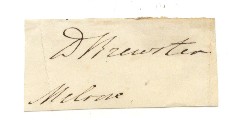 D Brewster
Melrose